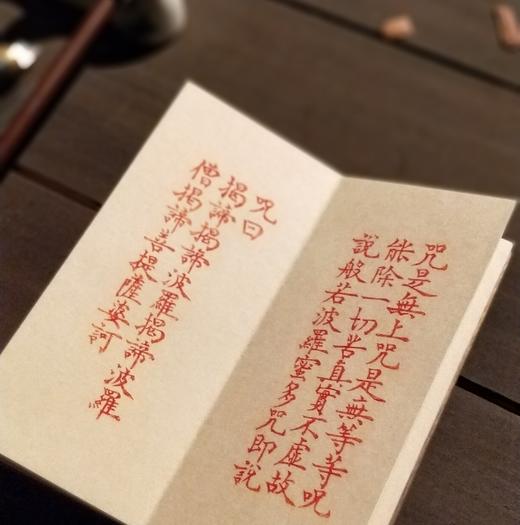 咒是無上咒是無等等咒
能除一切苦真實不虛故
說般若波羅蜜多咒即說
咒曰
揭諦揭諦波羅揭諦波羅
僧揭諦菩提薩婆訶